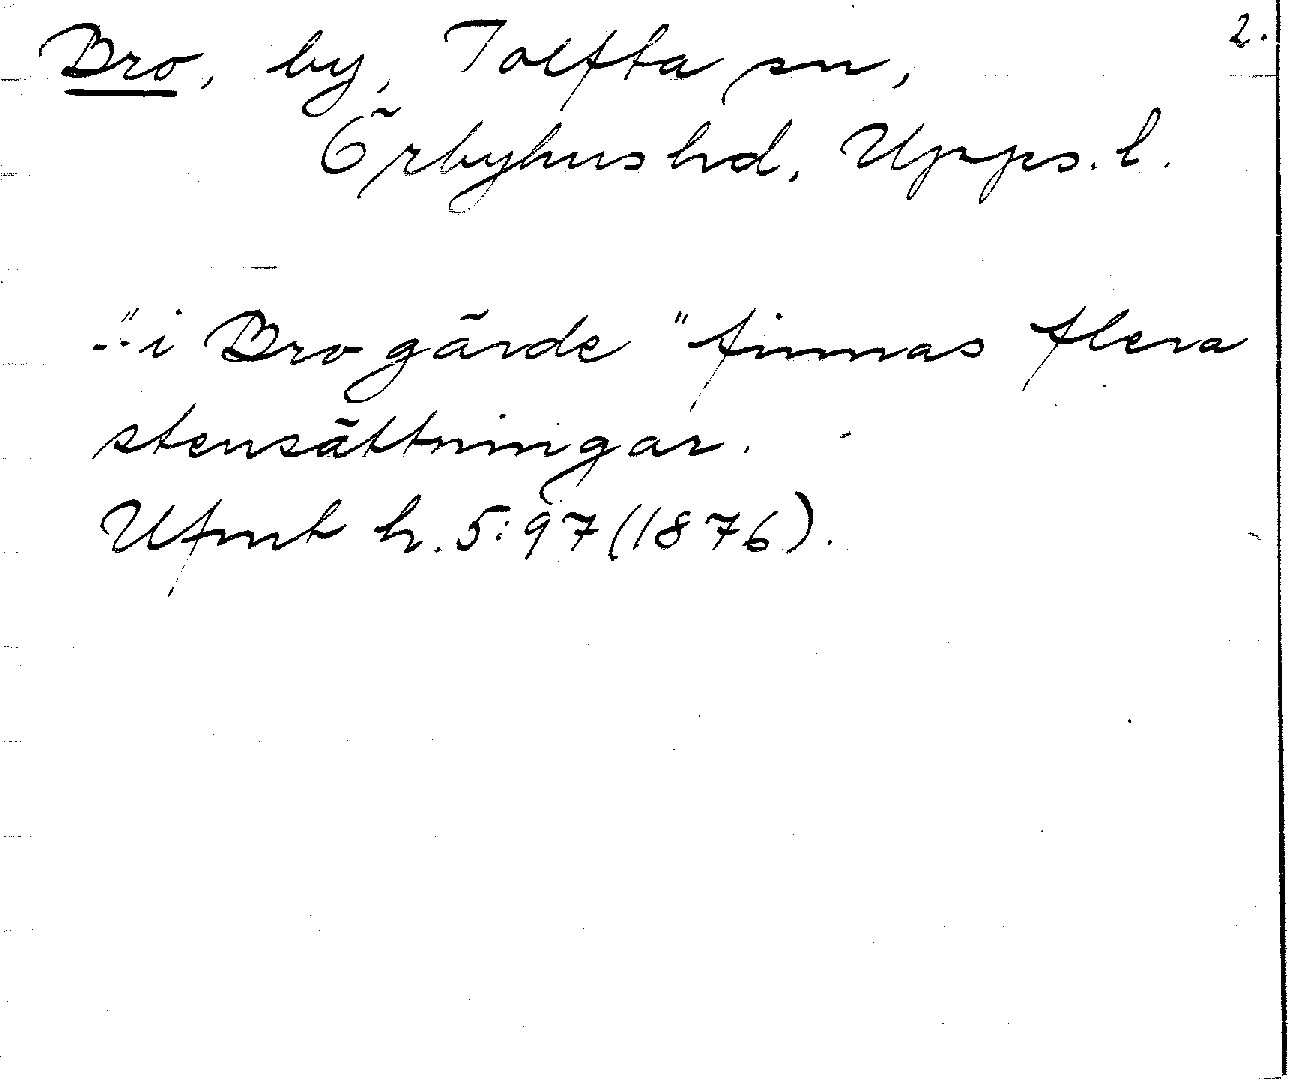 2.
Bro, by, Tolfta sn,
Örbyhus hd, Upps. l.
"i Bro gärde" finnas flera
stensättningar.
Ufmt h. 5:97 (1876).